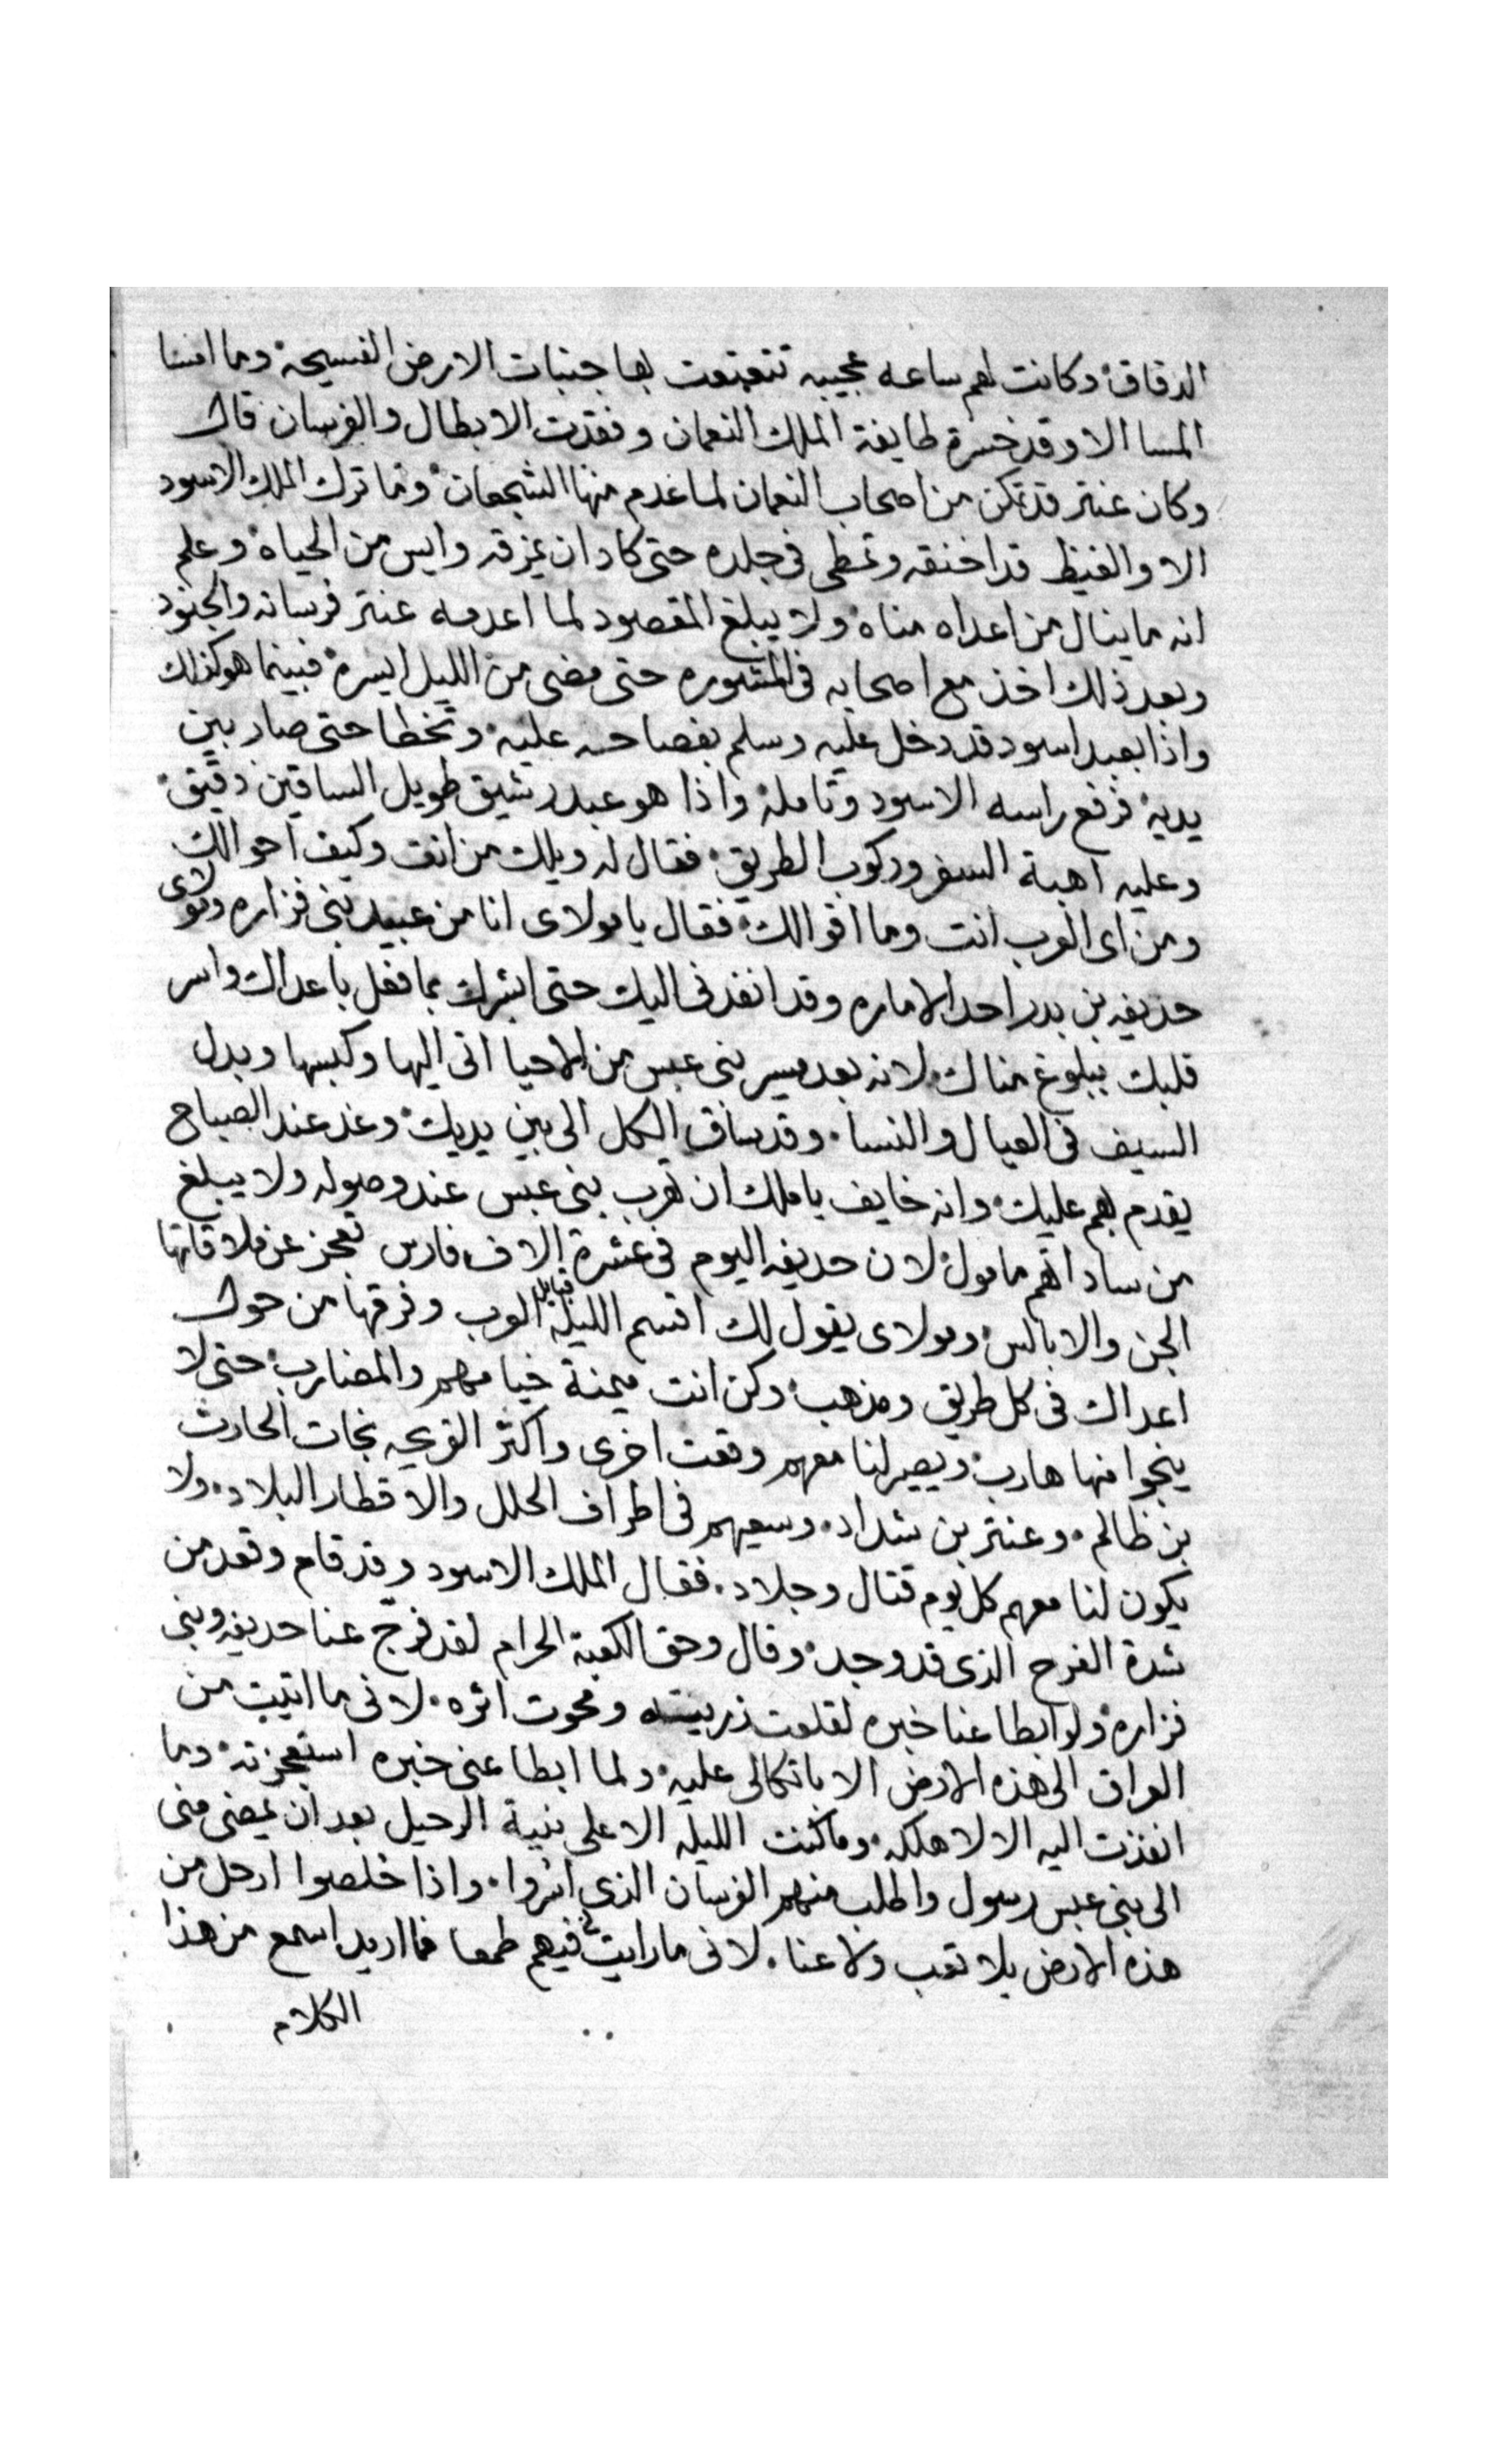 الدقاق وكانت لهم ساعه عجيبه تتعتعت بها جنبات الارض الفسيحة وما امسا
المسا الا وقد خسرة طايفة الملك النعمان وفقدت الابطال والفرسان قال
وكان عنتر قد تمكن من اصحاب النعمان لما عدم منها الشجعان وما ترك الملك الاسود
الا والغيظ قد اخنقه وتمطى فى جلده حتى كاد ان يمزقه وايس من الحياة وعلم
انه ما ينال من اعداه مناه ولا يبلغ المقصود لما اعدمه عنتر فرسانه والجنود
وبعد ذلك اخذ مع اصحابه فى المشوره حتى مضى من الليل ايسره فبينما هو كذلك
واذا بعبد اسود قد دخل عليه وسلم بفصاحه عليه وتخطا حتى صار بين
يديه فرفع راسه الاسود وتامله واذا هو عبد رشيق طويل الساقين دقيق
وعليه اهبة السفر وركوب الطريق فقال له ويلك من انت وكيف احوالك
ومن اى العرب انت وما اقوالك فقال يا مولاى انا من عبيد بنى فزاره ومولاى
حذيفه بن بدر احد الاماره وقد انفذنى اليك حتى ابشرك بما فعل باعداك واسر
قلبك ببلوغ مناك لانه بعد مسير بنى عبس من الاحيا اتى اليها وكبسها وبدل
السيف فى العيال والنسا وقد ساق الكل الى بين يديك وغد عند الصباح
يقدم بهم عليك وانه خايف يا ملك ان تهرب بنى عبس عند وصوله ولا يبلغ
من ساداتهم مامول لان حديفه اليوم فى عشرة الاف فارس تعجز عن ملاقاتها
الجن والابالس ومولاى يقول لك اقسم الليلة قبايل العرب وفرقها من حول
اعداك فى كل طريق ومذهب وكن انت ميمنة خيامهم والمضارب حتى لا
ينجوا منها هارب ويصير لنا معهم وقعت اخرى واكثر القرعه نجات الحارث
بن ظالم وعنتر بن شداد وسعيهم فى اطراف الحلل والاقطار البلاد ولا
يكون لنا معهم كل يوم قتال وجلاد فقال الملك الاسود وقد قام وقعد من
شدة الفرح الذى قد وجد وقال وحق الكعبة الحرام لقد فرج عنا حديفه وبنى
فزاره ولو ابطا عنا خبره لقلعت ذريته ومحوت اثره لانى ما اتيت من
العراق الى هذه الارض الا باتكالى عليه ولما ابطا عنى خبره استعجزته وما
انفذت اليه الا لاهلكه وما كنت الليله الا على نية الرحيل بعد ان يمضى منى
الى بنى عبس رسول واطلب منهم الفرسان الذى اسروا واذا خلصوا ارحل من
هذه الارض بلا تعب ولا عنا لانى ما رايت فيهم طمعا فما اريد اسمع من هذا
الكلام